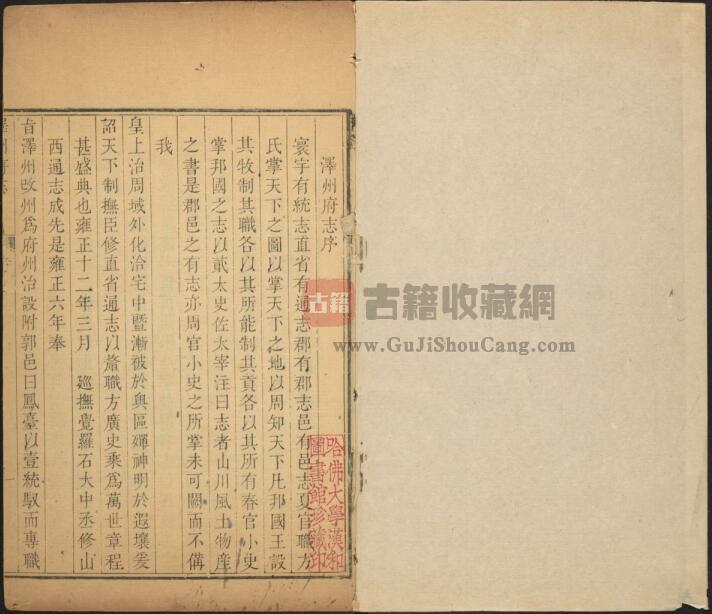 澤州府志序
寰宇有統志直省有通志郡有郡志邑有邑志夏官職方
氏掌天下之圖以掌天下之地以周知天下凡邦國王設
其牧制其職各以其所能制其貢各以其所有春官小史
掌邦國之志以貳太史佐太宰注曰志者山川風土物產
之書是郡邑之有志亦周官小史之所掌未可闕而不備
我
皇上治周域外化洽宅中暨漸被於輿區殫神明於遐壤爰
詔天下制撫臣修直省通志以觽職方廣史乘爲萬世章程
甚盛典也雍正十二年三月 廵撫覺羅石大中丞修山
西通志成先是雍正六年奉
旨澤州改州爲府州治設附郭邑曰鳳臺以壹統馭而專職
澤州府志
哈佛大學漢和
圖書館珍藏印
古籍
古籍收藏網
www.GuJiShouCang.com